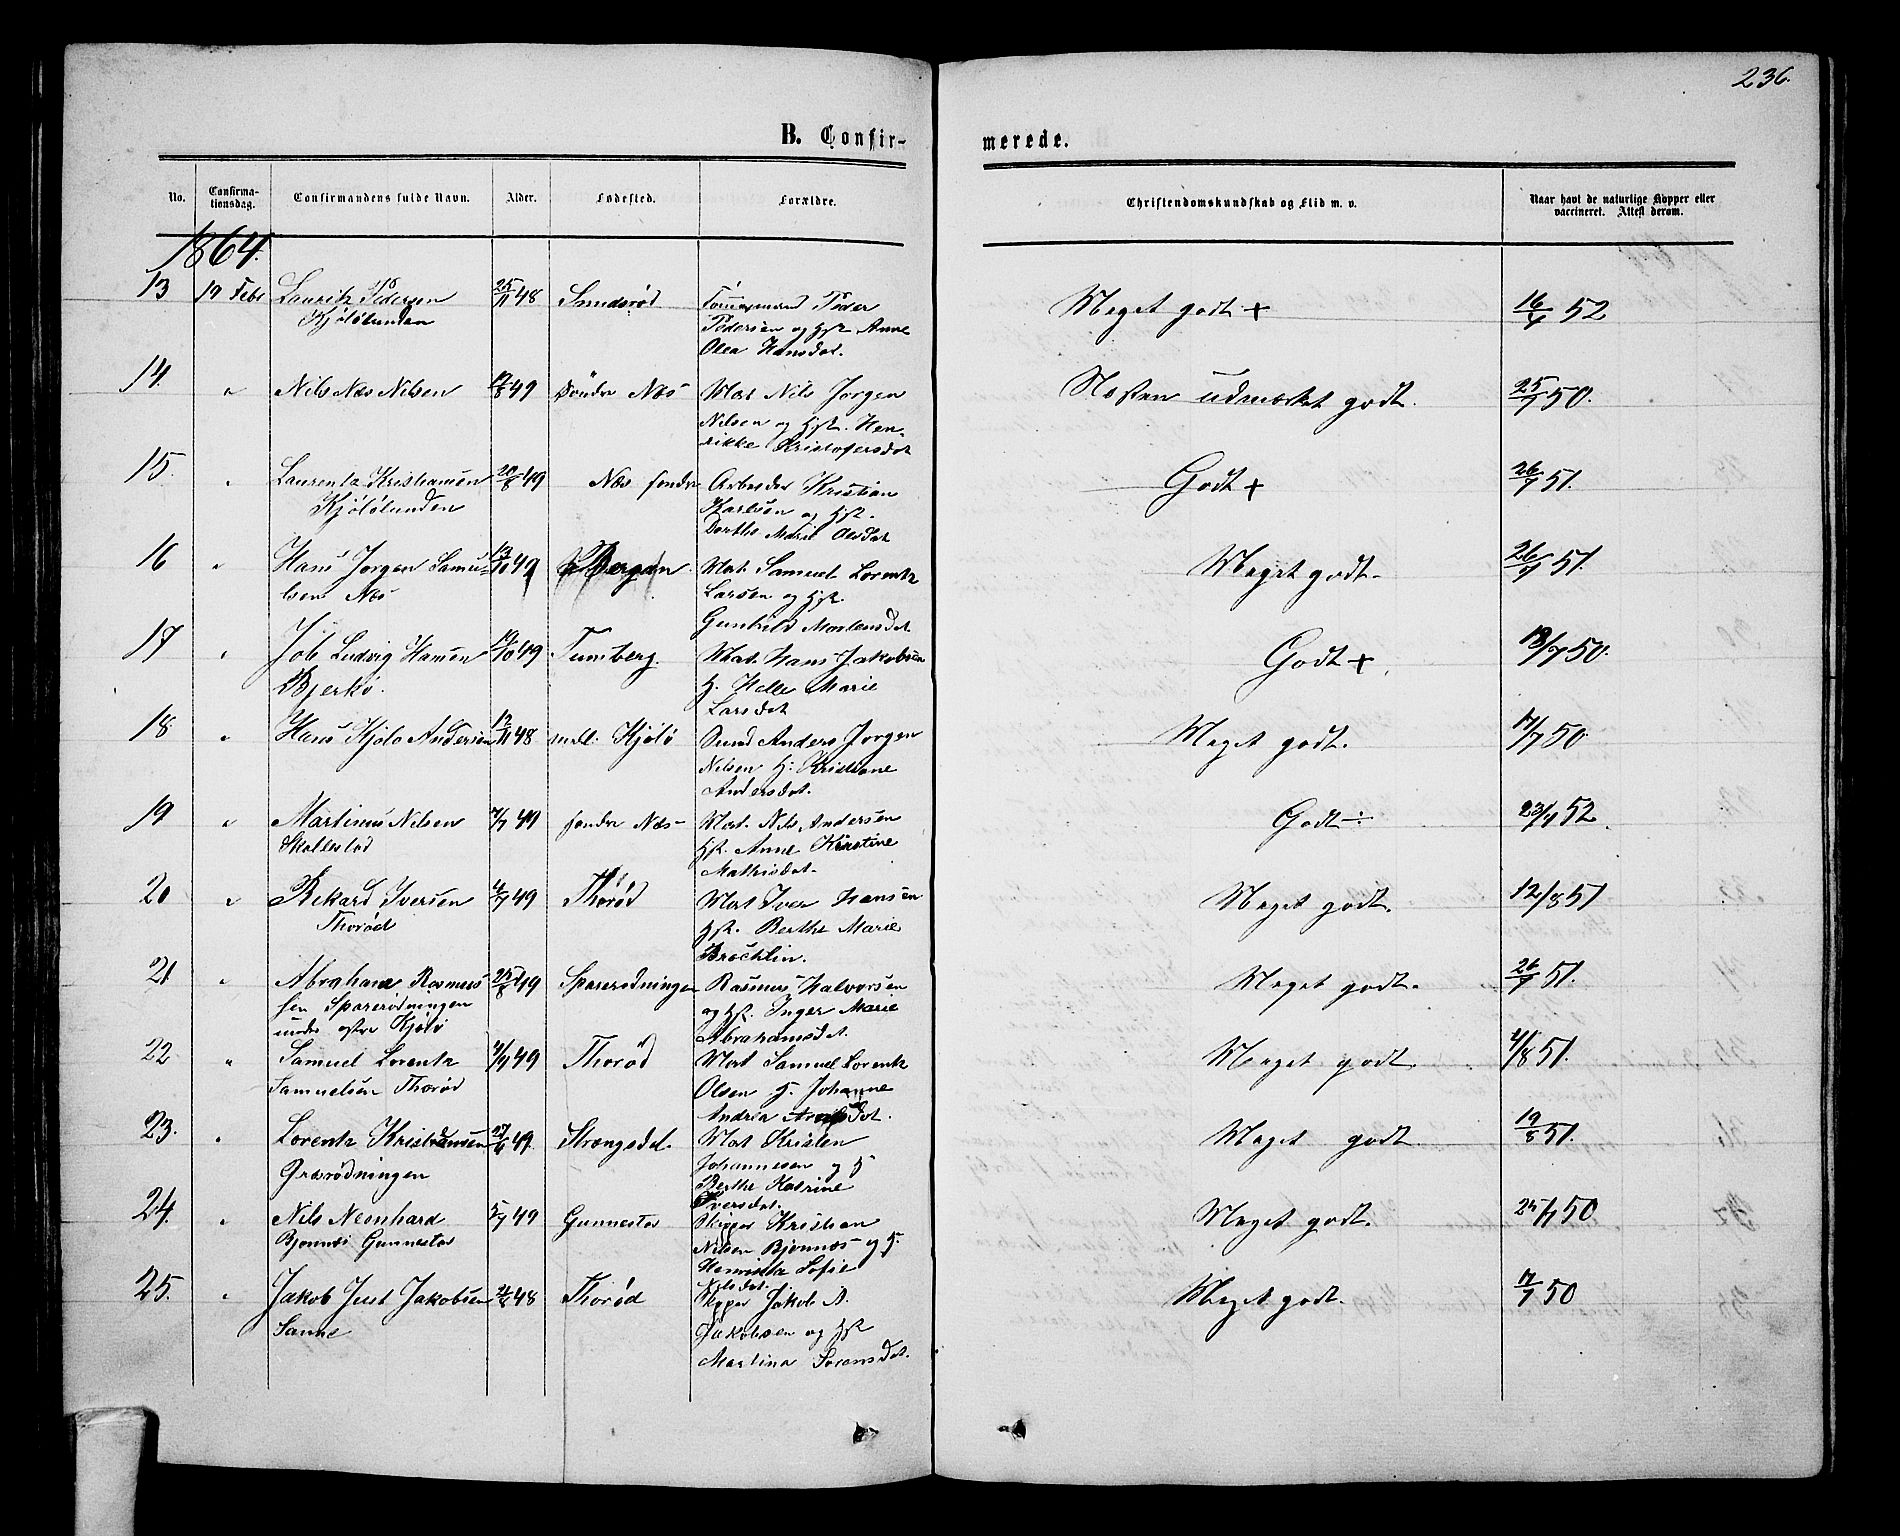 236.
B. Confir-
merede.
No.
Confirma-
tionsdag.
Confirmandens fulde Navn.
Alder.
Fødested.
Forældre.
Christendomskundskab og Flid m. v.
Naar havt de naturlige Kopper eller
vaccineret. Attest derom.
1864.
13 19 Febr Lauritz Pedersen 25/11 48 Sundsrød Tømmermand Peder
Kjølølunden Pedersen og Hst. Anne
Olea Hansdat.
Meget godt + 16/7 52
14. " Nils Næs Nilsen 49 Søndre Næs Mat Nils Jørgen
Nilsen og Hst. Hen-
rikke Kristofersdat
Næsten udmærket godt. 25/7 50.
15. " Laurentz Kristiansen 20/8 49 Næs søndre Arbeider Kristian
Kjølølunden Karlsen og Hst.
Dorthe Marie Olsdat
Godt + 26/7 51.
16 " Hans Jørgen Samu- 13/10 49 Bergan Mat. Samuel Lorentz
elsen Næs Larsen og Hst.
Gunhild Mortensdat
Meget godt. 26/7 51.
17 " Job Ludvig Hansen 19/10 49 Tunsberg. Mat. Hans Jakobsen
Bjerkø. H. Helle Marie
Larsdat
Godt + 18/7 50.
18. " Hans Kjølø Andersen 12/11 48 mell. Kjølø Anders Jørgen
Nilsen H. Kristiane
Andersdat.
Meget godt. 17/7 50
19 " Martinus Nilsen 7/7 49 søndre Næs Mat. Nils Andersen
Skallestød Hst. Anne Kirstine
Mathisdat.
Godt ÷ 23/7 52.
20 " Rikard Iversen 4/7 49 Thorød Mat Iver Hansen
Thorød Hst. Berthe Marie
Brochlin.
Meget godt. 12/8 51
21. " Abraham Rasmus 25/8 49 Sparerødningen Rasmus Halvorsen
sen Sparerødningen og Hst. Inger Marie
under østre Kjølø Abrahamsdat.
Meget godt. 26/7 51.
22 " Samuel Lorentz 49 Thorød Mat Samuel Lorentz
Samuelsen Thorød Olsen H. Johanne
Andrea
Meget godt. 4/8 51.
23. " Lorentz Kristiansen 49. Strengsdal. Mat Kristen
Græsrødningen Johannesen og H
Berthe Katrine
Iversdat.
Meget godt. 19/8 51.
24. " Nils Neonhard 5/7 49 Gunnestør Skipper Kristian
Bjønnes Gunnestør Nilsen Bjønnæs og H.
Henrikke Sofie
Nilsdat.
Meget godt. 25/7 50
25. " Jakob Just Jakobsen 48 Thorød Skipper Jakob A.
Sanne Jakobsen og Hst
Martina Sørensdat.
Meget godt. 17/7 50